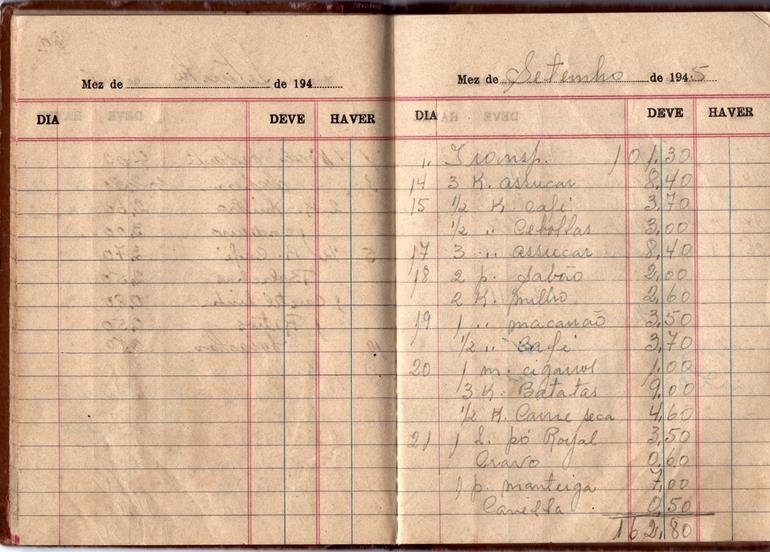 Mez de de 194
DIA DEVE HAVER
Mez de Setembro de 1945
DIA DEVE HAVER
" Transp. 101,30
14 3 K. assucar 8,40
15 1/2 K. Café 3,70
1/2 " Cebollas 3,00
17 3 " assucar 8,40
18 2 p. Sabão 2,00
2 K. milho 2,60
19 1 " macarrão 3,50
1/2 " Café 3,70
20 1 m. cigarros 1,00
3 K. Batatas 9,00
1/2 K. Carne seca 4,60
21 1 L. pó Royal 3,50
Cravo 0,60
1 p. manteiga 7,00
Canella 0,50
162,80